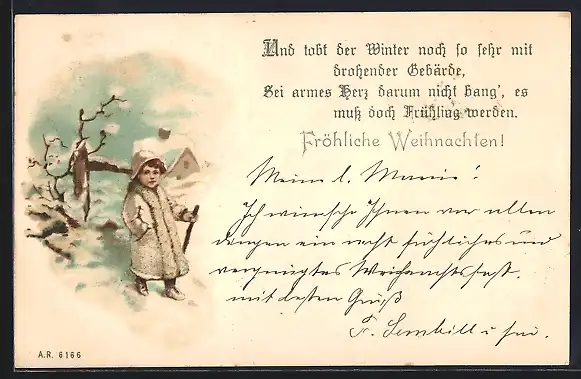 Und tobt der Winter noch so sehr mit
drohender Gebärde,
Sei armes Herz darum nicht bang', es
muß doch Frühling werden.
Fröhliche Weihnachten!
Meine l. Marie!
Ich wünsche Ihnen vor allen
dingen ein recht fröhliches und
vergnügtes Weihnachtsfest.
mit besten Gruß
A.R. 6166